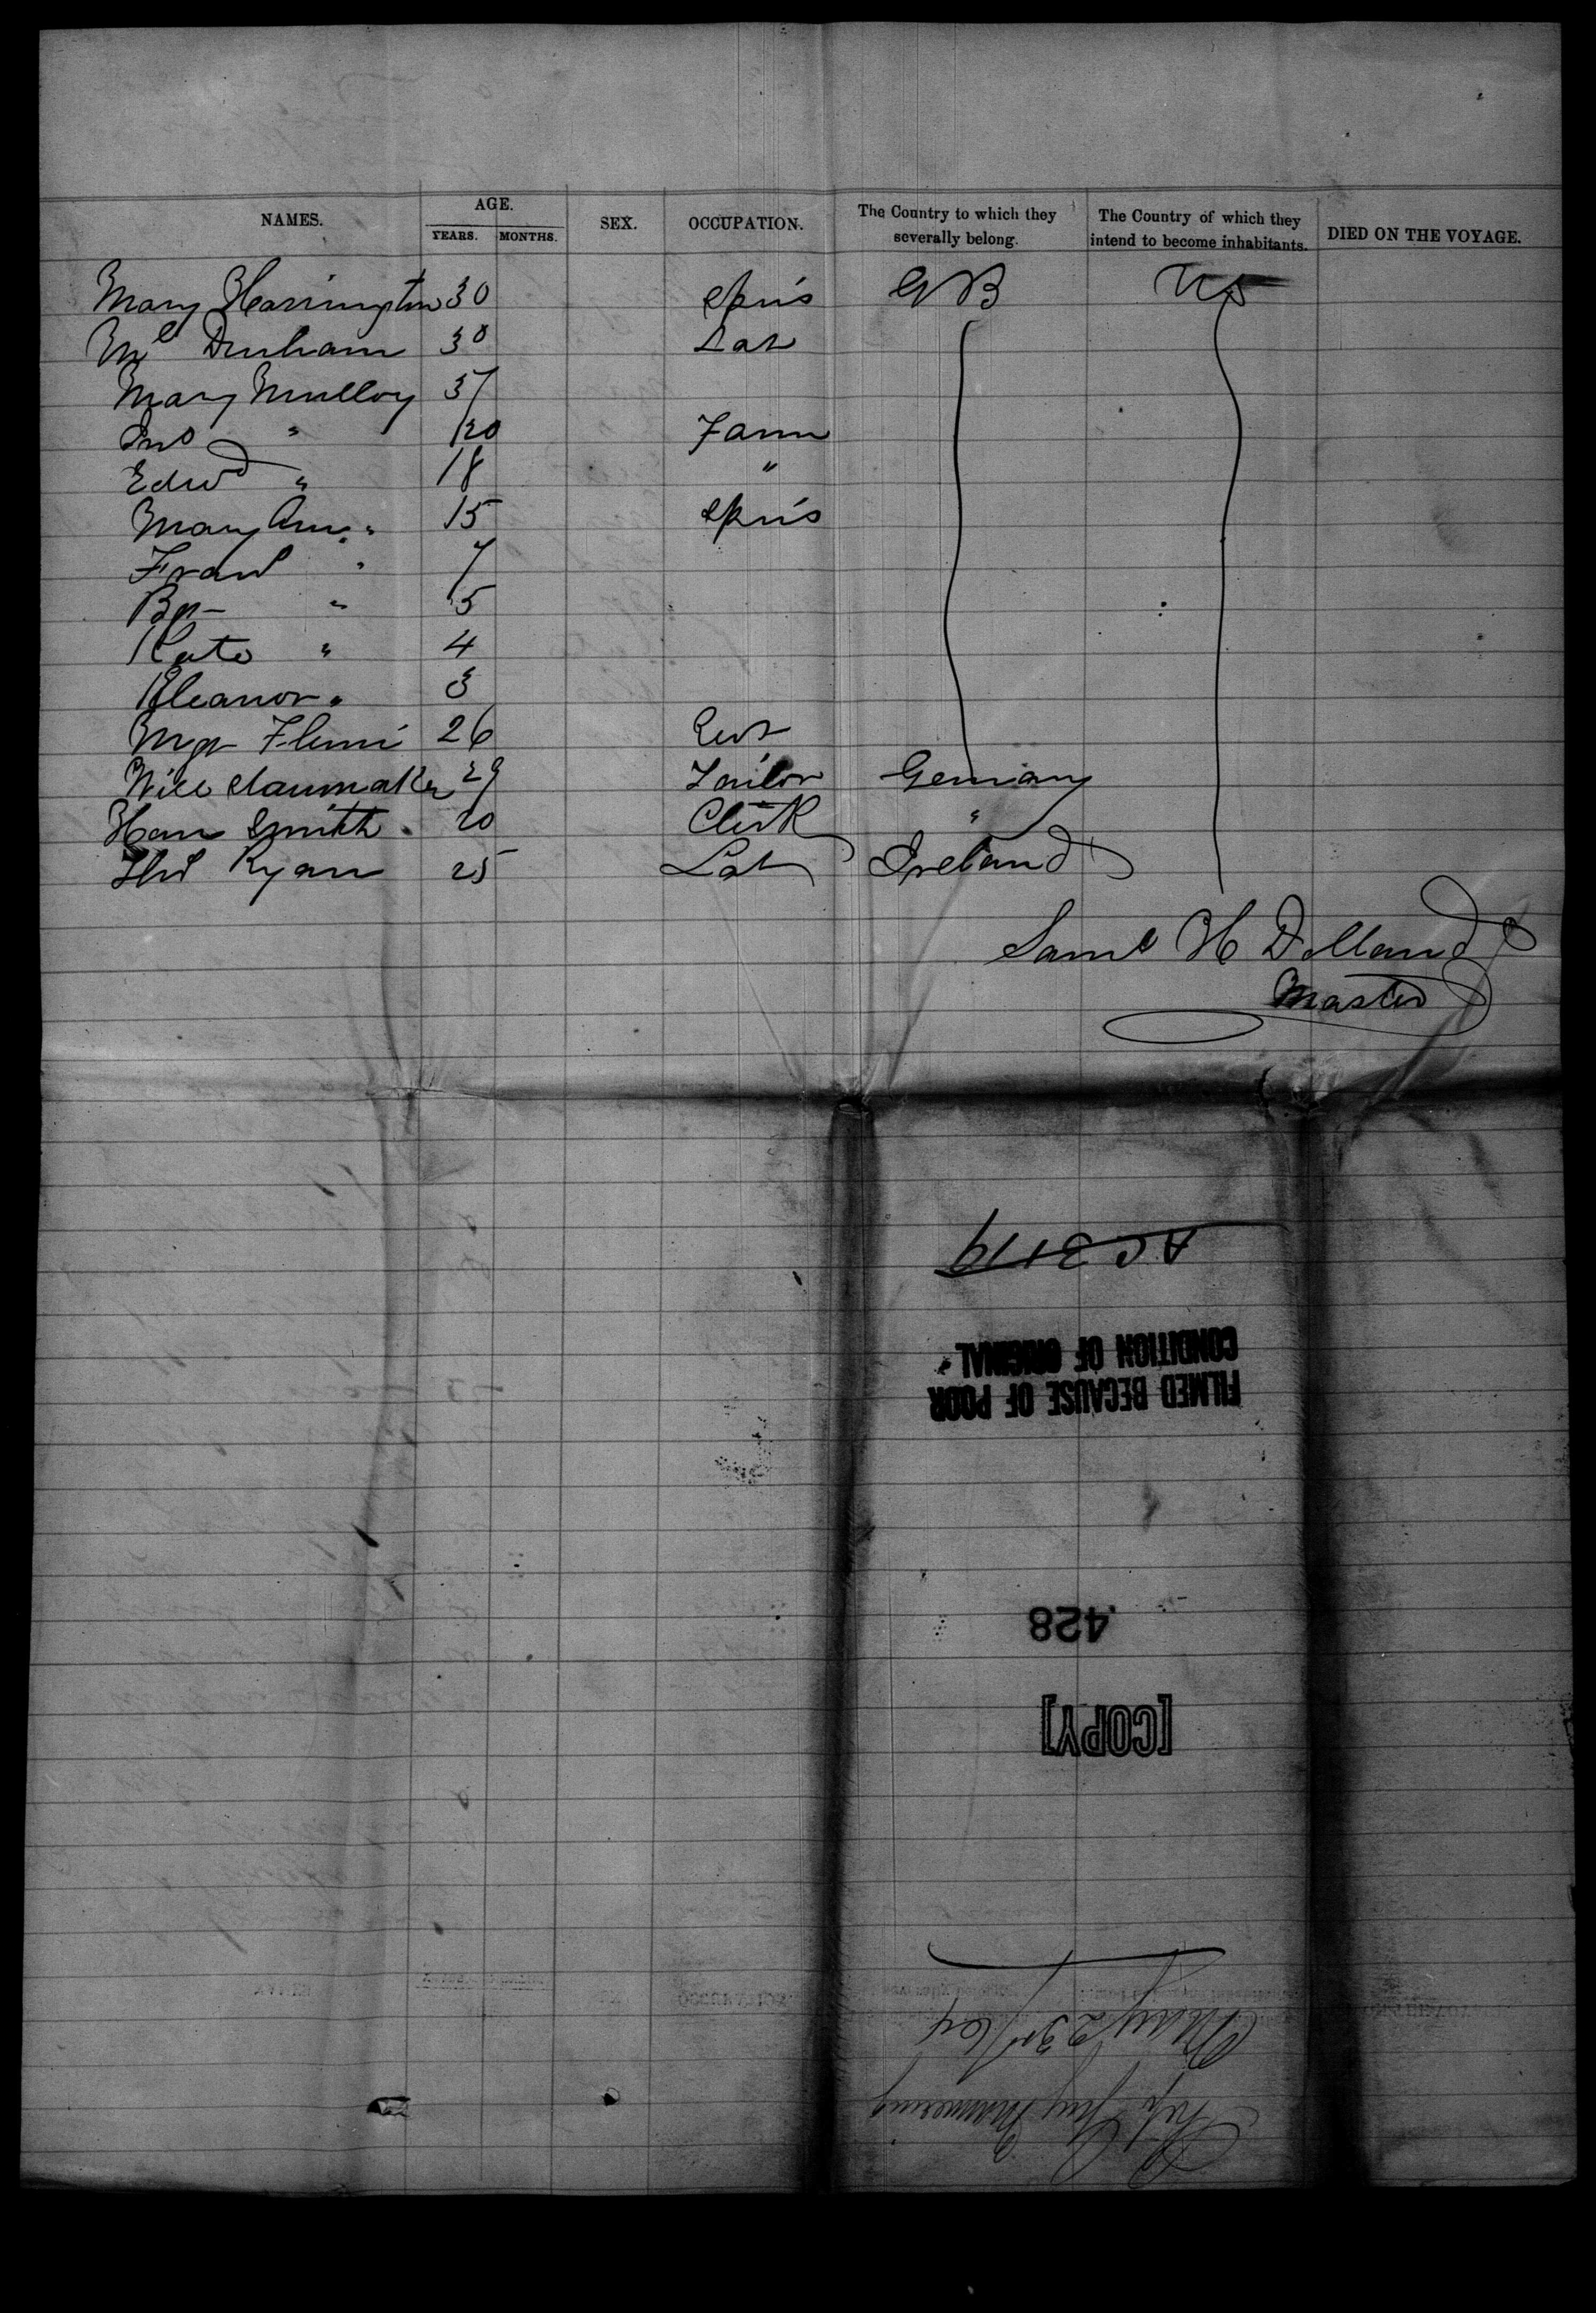 NAMES. AGE. YEARS. MONTHS. SEX. OCCUPATION. The Country to which they severally belong. The Country of which they intend to become inhabitants. DIED ON THE VOYAGE.
Mary Harrington 30 Spins G B US
Ml Durham 30 Lab
Mary Mulloy 37
Jno " 20 Farm
Edwd " 18 "
Mary Ann " 15 Spins
Frank " 7
" 5
Kate " 4
Eleanor " 3
Mgt 26
Will 29 Tailor Germany
Smith 20 Clerk "
Thos Ryan 25 Lab Ireland
Saml H Dolland
Master
AC 3119
FILMED BECAUSE OF POOR
CONDITION OF ORIGINAL
428
[COPY]
Ship Guy Mannering
May 23rd/64